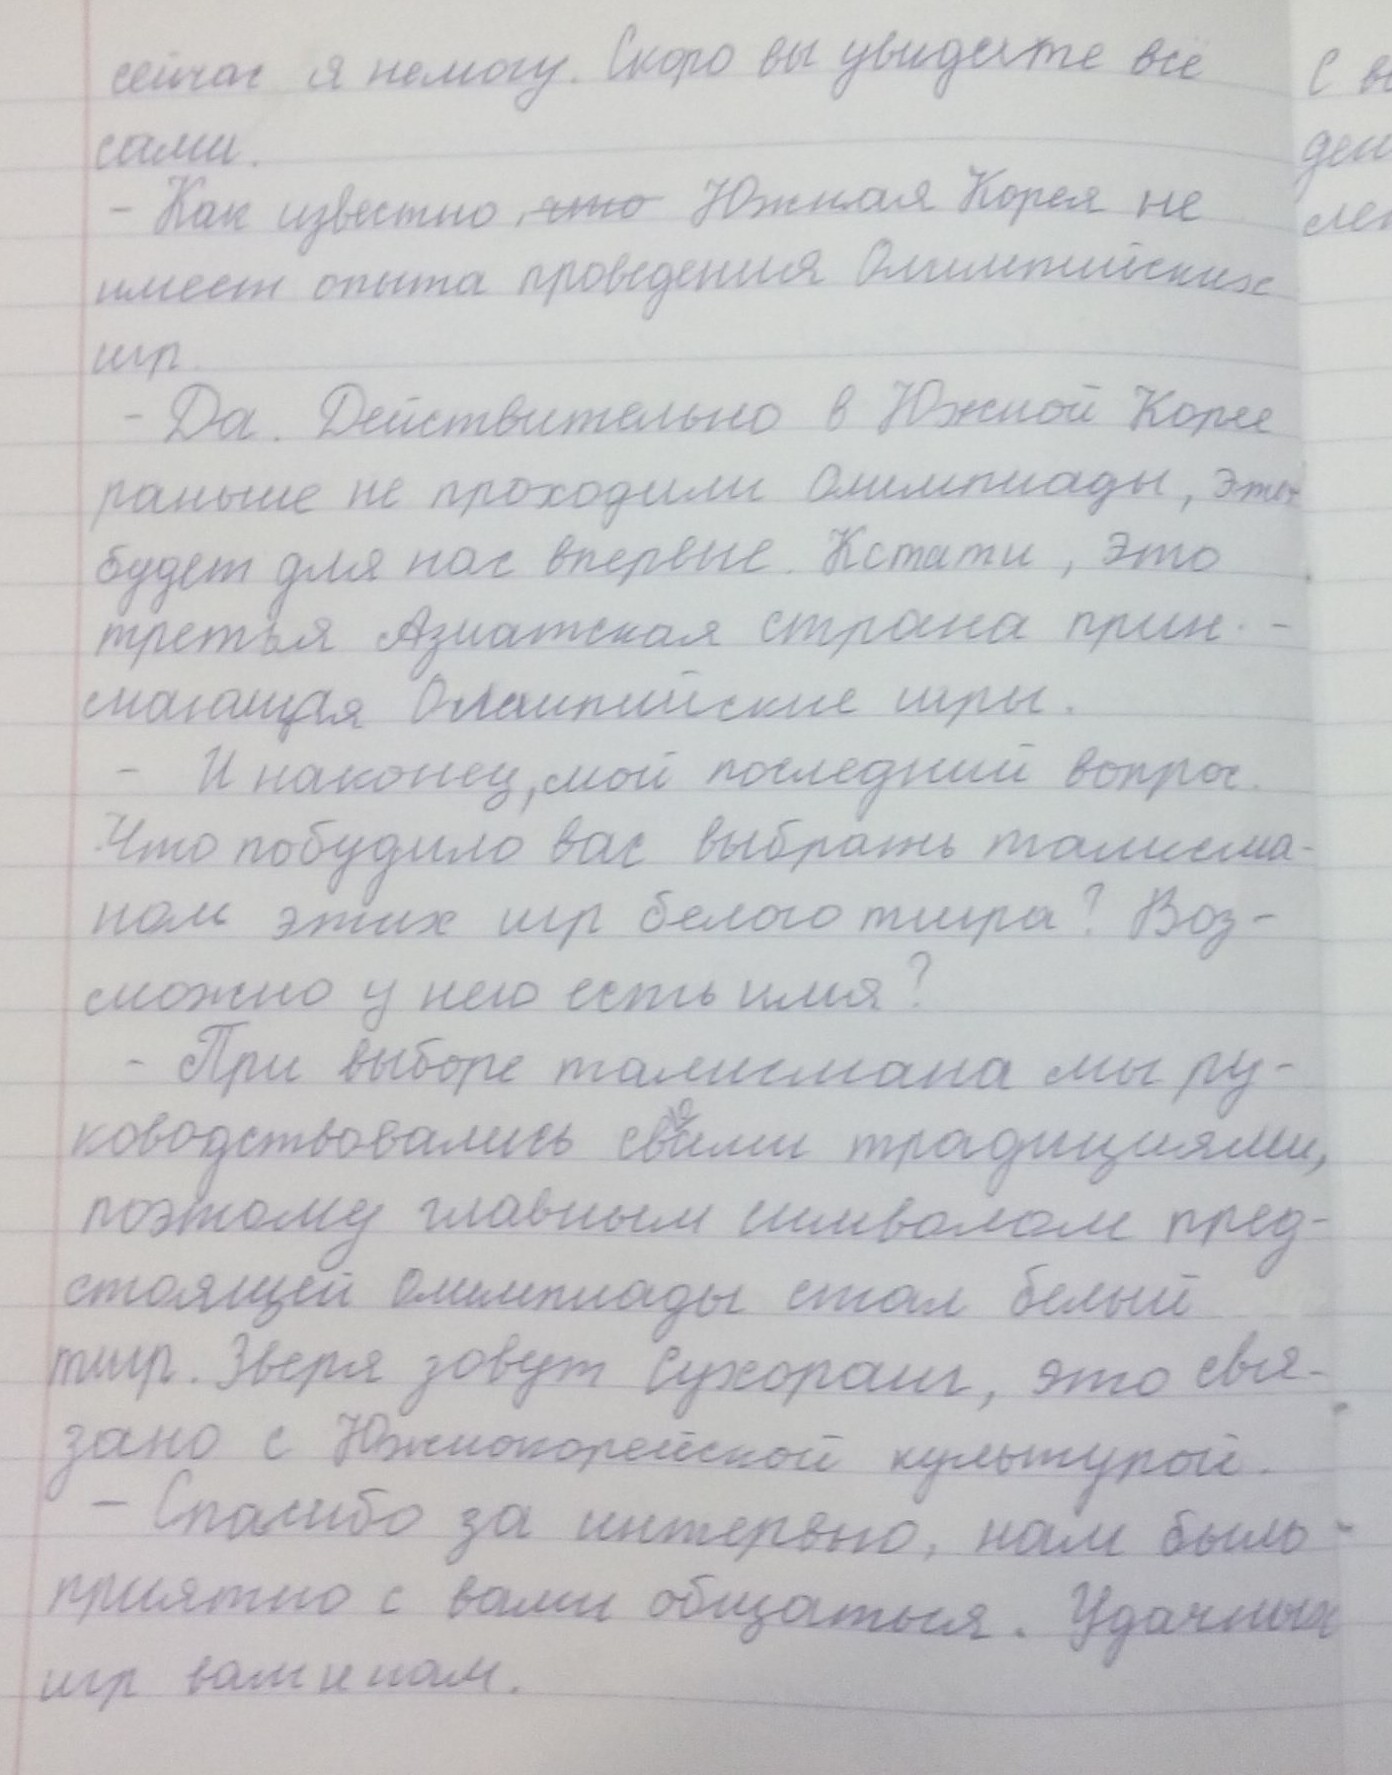 сейчас я немогу. Скоро вы увидите все
сами.
- Как известно, что Южная Корея не
имеет опыта проведения Олимпийских
игр.
- Да. Действительно в Южной Корее
раньше не проходили Олимпиады, это
будет для нас впервые. Кстати, это
третья Азиатская страна прини-
мающая Олимпийские игры.
- И наконец, мой последний вопрос.
Что побудило вас выбрать талисма-
ном этих игр белого тигра? Воз-
можно у него есть имя?
- При выборе талисмана мы ру-
ководствовались своими традициями,
поэтому главным символом пред-
стоящей Олимпиады стал белый
тигр. Зверя зовут Сухоранг, это свя-
зано с Южнокорейской культурой.
- Спасибо за интервью, нам было
приятно с вами общаться. Удачных
игр вам и нам.